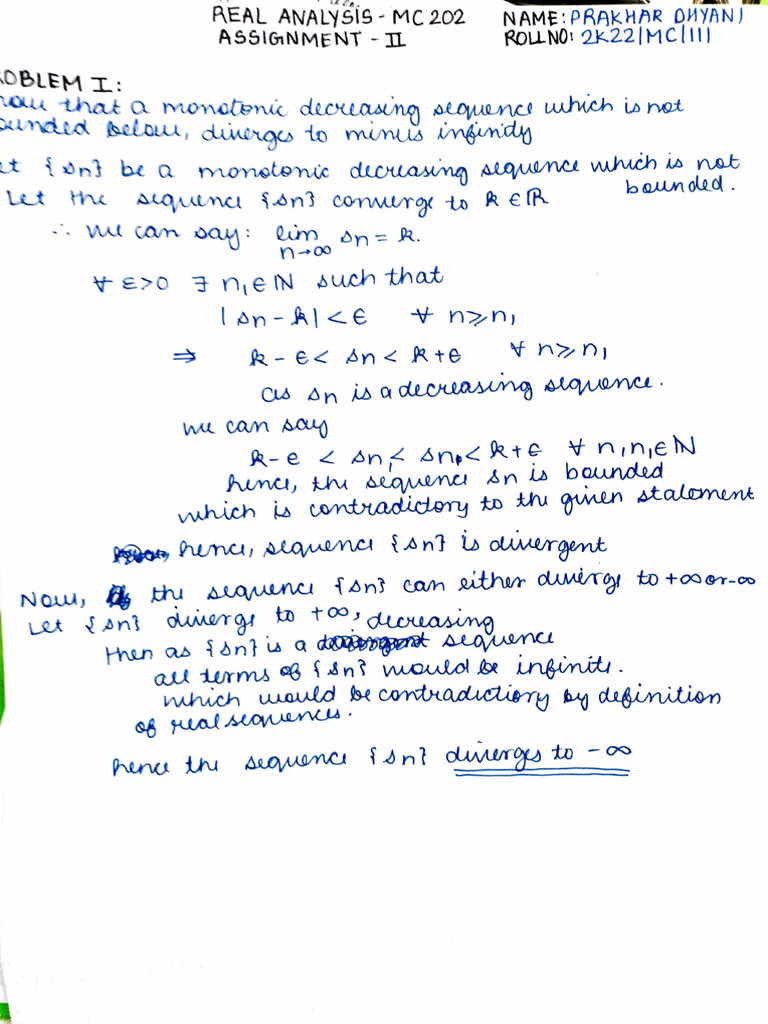 REAL ANALYSIS - MC 202
ASSIGNMENT - II
NAME: PRAKHAR DHYANI
ROLL NO: 2K22/MC/111
OBLEM I:
how that a monotonic decreasing sequence which is not
ounded below, diverges to minus infinity
et {sn} be a monotonic decreasing sequence which is not bounded.
Let the sequence {sn} converge to k ∈ ℝ
∴ we can say: lim n→∞ sn = k.
∀ ε>0 ∃ n₁∈ℕ such that
|sn - k| < ϵ ∀ n≥n₁
⇒ k - ϵ < sn < k + ϵ ∀ n≥n₁
as sn is a decreasing sequence.
we can say
k - e < sn₁ < sn, < k + ϵ ∀ n, n₁∈ℕ
hence, the sequence sn is bounded
which is contradictory to the given statement
hence, sequence {sn} is divergent
Now, the sequence {sn} can either diverge to +∞ or -∞
Let {sn} diverge to +∞,
then as {sn} is a decreasing sequence
all terms of {sn} would be infinite.
which would be contradictiory by definition
of real sequences.
hence the sequence {sn} diverges to -∞